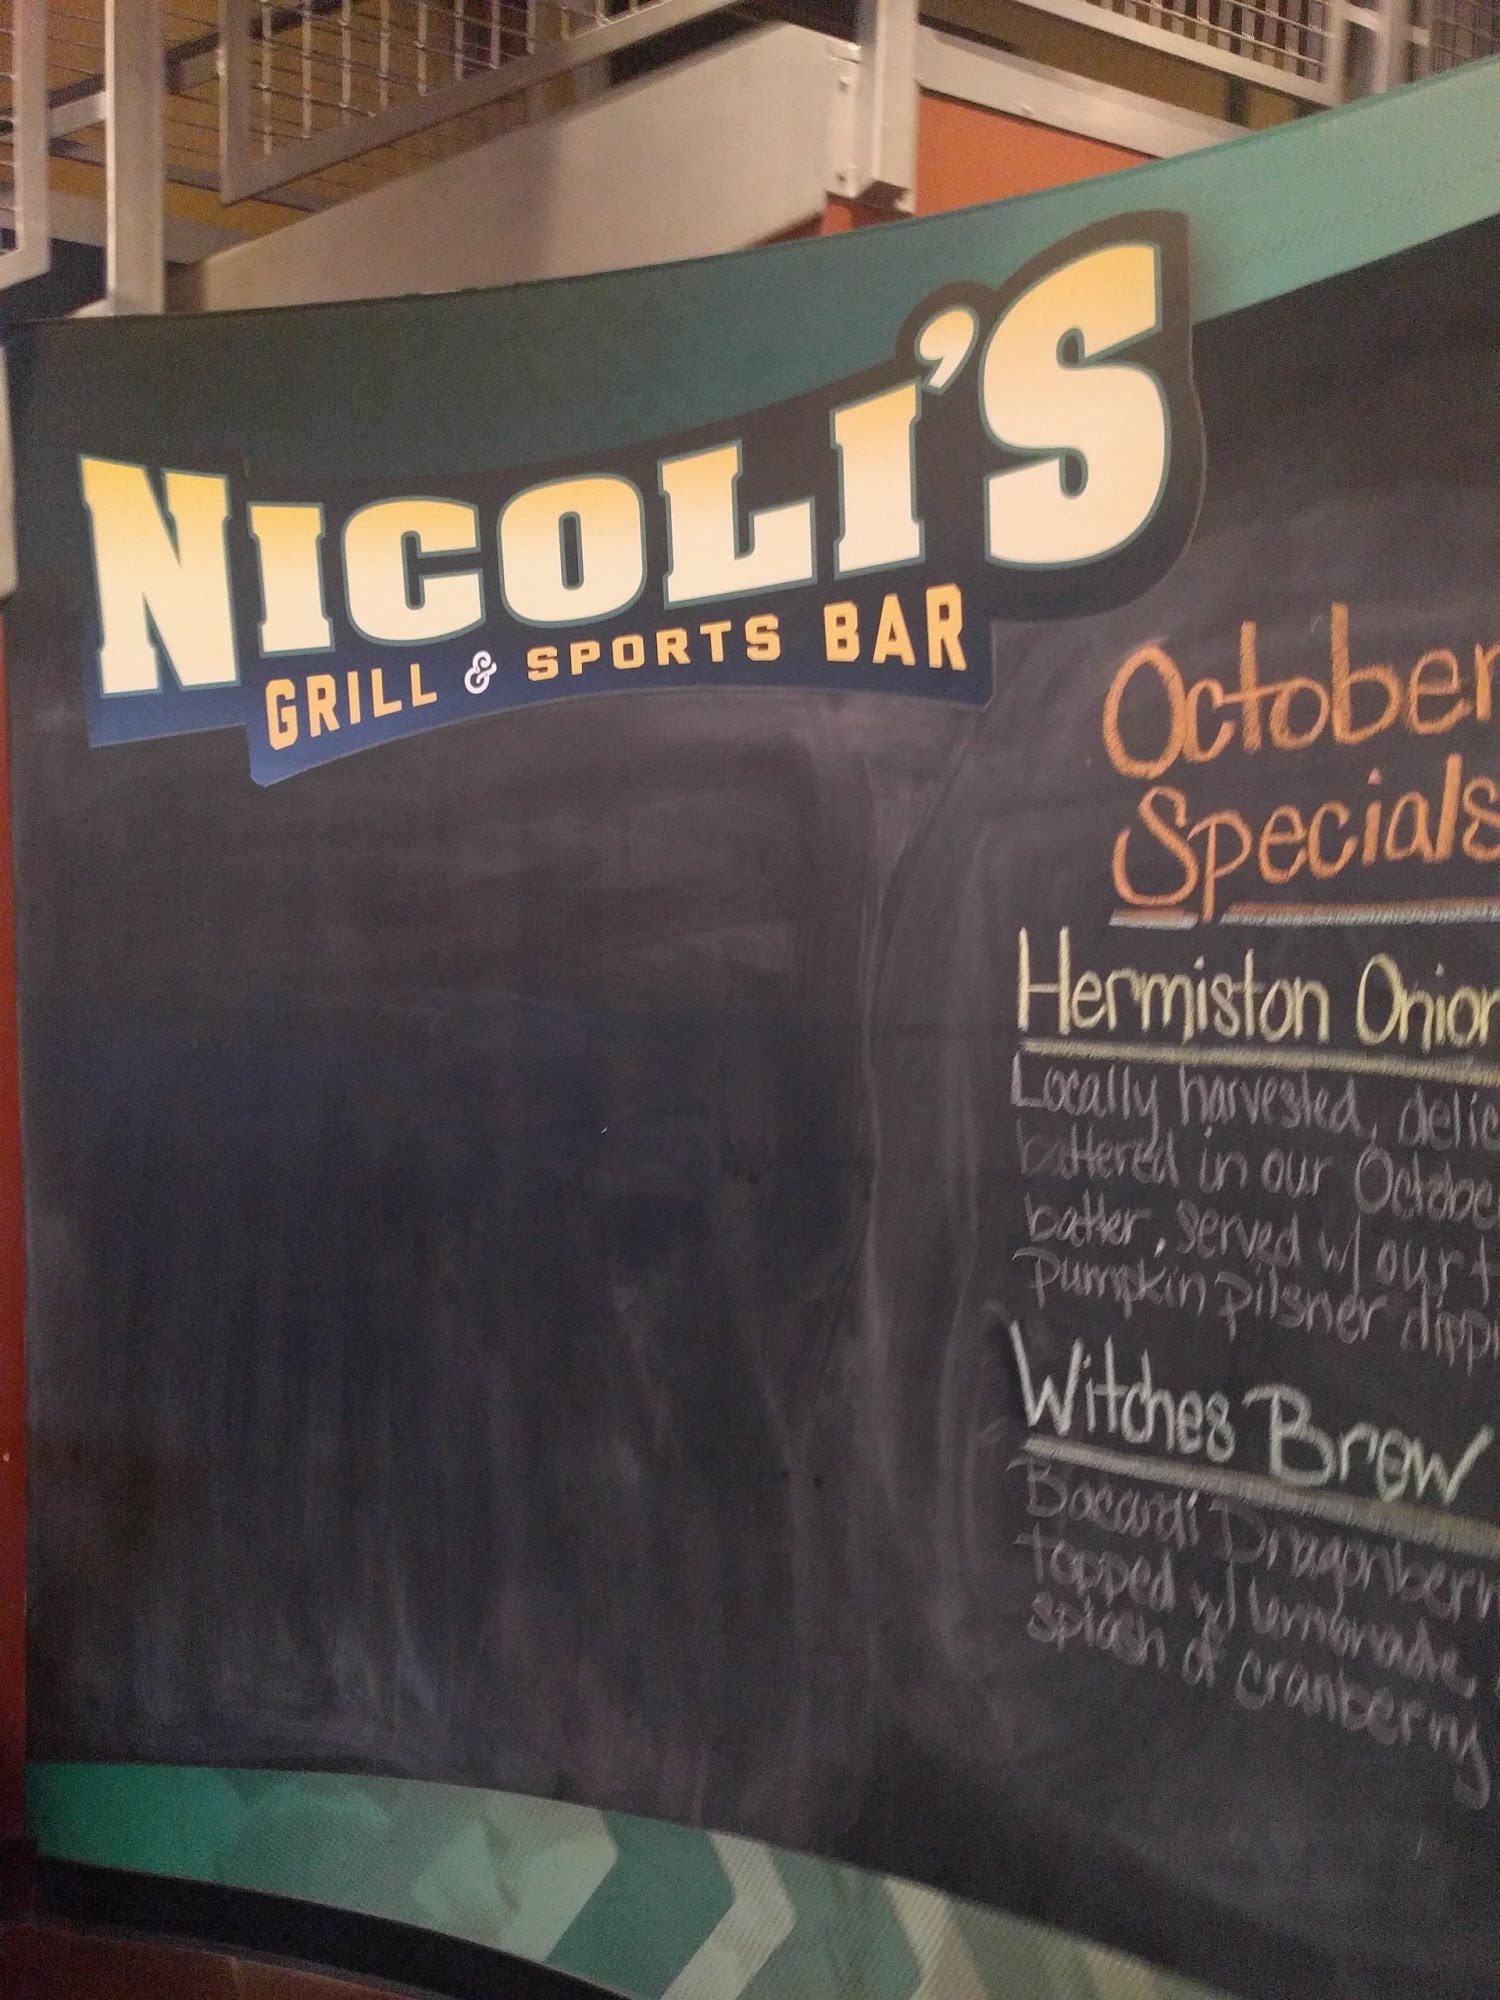 NICOLI'S
GRILL & SPORTS BAR
October
Specials
Hermiston Onion
Locally harvested, delic
battered in our Octobe
batter, served w/ our t
Pumpkin Pilsner dippi
Witches Brew
Bacardi Dragonberr
topped w/ lemonade,
splash of cranberry